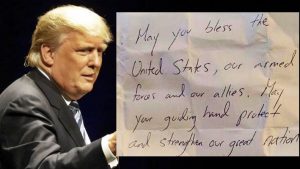 May you bless the
United States, our armed
forces and our allies. May
your guiding hand protect
and strengthen our great nation